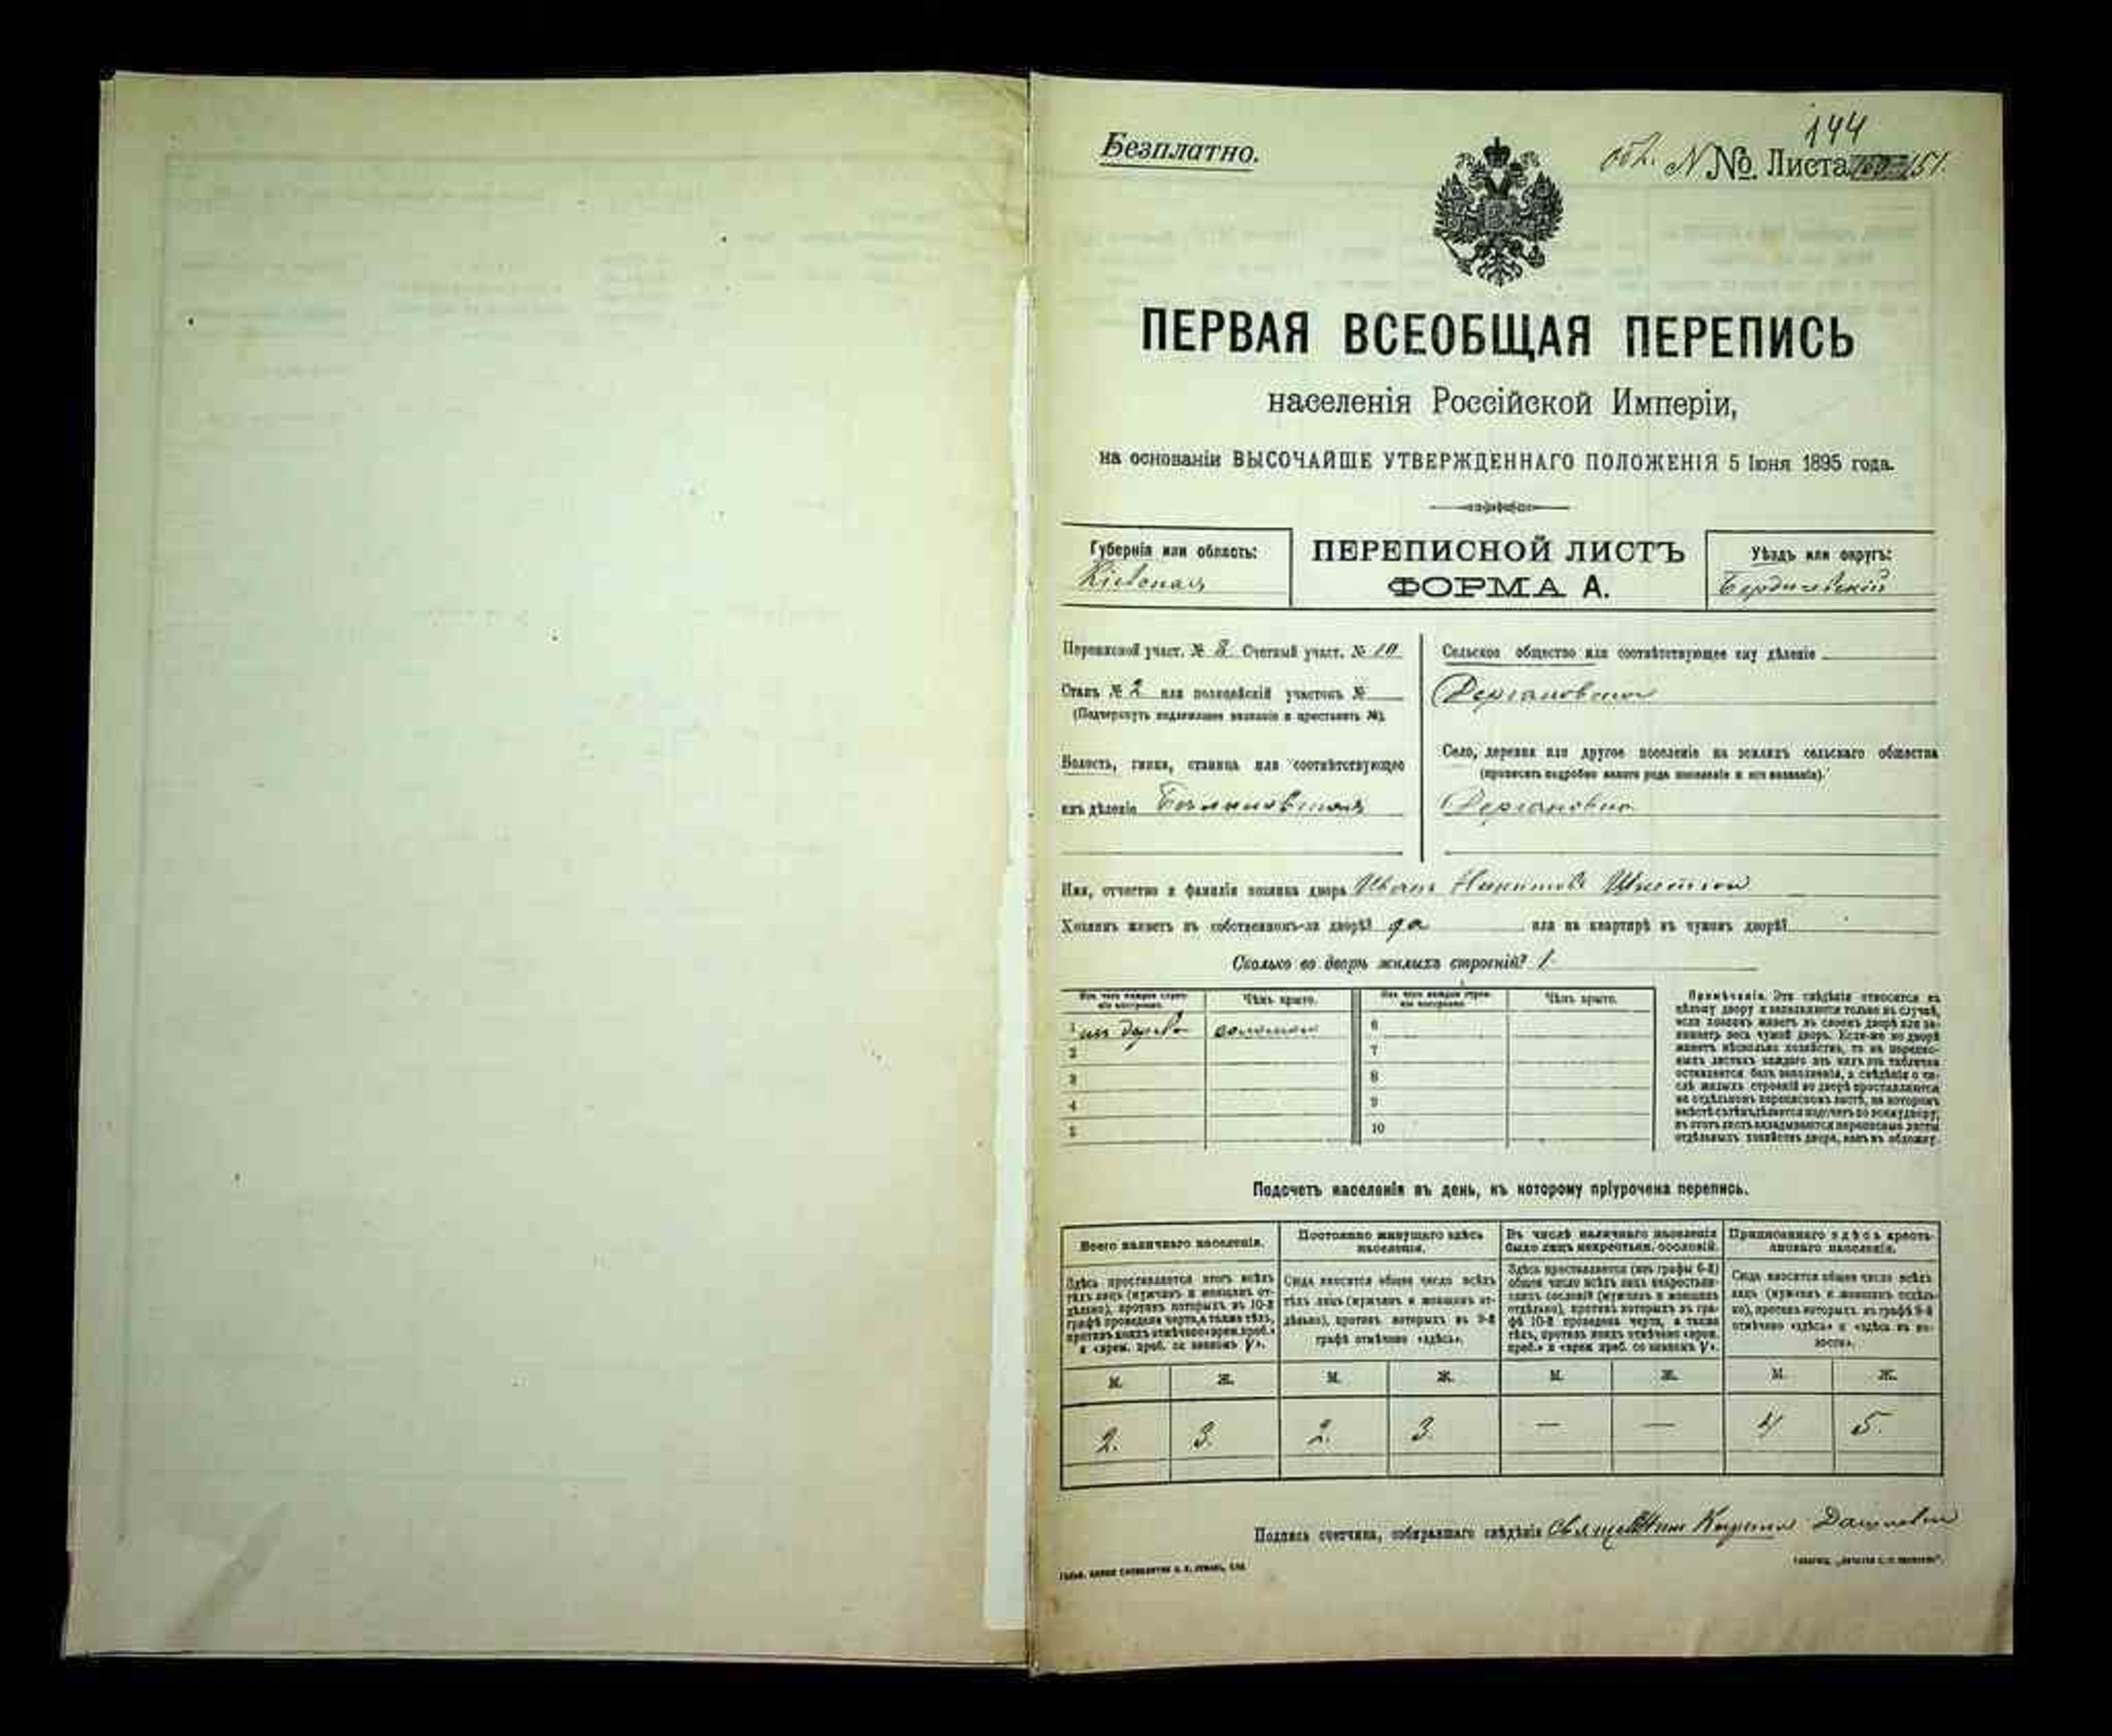 Безплатно.
144
№ Листа 151.
ПЕРВАЯ ВСЕОБЩАЯ ПЕРЕПИСЬ
населенія Россійской Имперіи,
на основаніи ВЫСОЧАЙШЕ УТВЕРЖДЕННАГО ПОЛОЖЕНІЯ 5 Іюня 1895 года.
Губернія или область:
Кіевская
ПЕРЕПИСНОЙ ЛИСТЪ
ФОРМА А.
Уѣздъ или округъ:
Бердичевскій
Переписной участ. № Счетный участ. № 10
Станъ № 2 или полицейскій участокъ №
(Подчеркнуть надлежащее названіе и проставить №).
Волость, гмина, станица или соотвѣтствующее
имъ дѣленіе
Сельское общество или соотвѣтствующее ему дѣленіе
Село, деревня или другое поселеніе на земляхъ сельскаго общества
(прописать подробно какого рода поселеніе и его названіе).
Имя, отчество и фамилія хозяина двора Иванъ
Хозяинъ живетъ въ собственномъ-ли дворѣ? да или на квартирѣ въ чужомъ дворѣ?
Сколько во дворѣ жилыхъ строеній? 1
Изъ чего каждое строеніе построено. Чѣмъ крыто. Изъ чего каждое строеніе построено. Чѣмъ крыто.
1 изъ дерева соломою 6
2 7
3 8
4 9
5 10
Примѣчаніе. Эти свѣдѣнія относятся къ
цѣлому двору и заполняются только въ случаѣ,
если хозяинъ живетъ въ своемъ дворѣ или занимаетъ
весь чужой дворъ. Если-же во дворѣ
имѣетъ нѣсколько хозяйствъ, то на переписныхъ
листахъ каждаго изъ нихъ эта табличка
оставляется безъ заполненія, а свѣдѣнія о числѣ
жилыхъ строеній во дворѣ проставляются
на отдѣльномъ переписномъ листѣ, на которомъ
вмѣстѣ съ тѣмъ дѣлается подсчетъ по всему двору;
въ этотъ листъ вкладываются переписные листы
отдѣльныхъ хозяйствъ двора, какъ въ обложку.
Подсчетъ населенія въ день, къ которому пріурочена перепись.
Всего наличнаго населенія.
Здѣсь проставляется итогъ всѣхъ
тѣхъ лицъ (мужчинъ и женщинъ отдѣльно),
противъ которыхъ въ 10-й
графѣ проведена черта, а также тѣхъ,
противъ коихъ отмѣчено «врем. преб.»
и «врем. преб. со знакомъ V».
Постоянно живущаго здѣсь
населенія.
Сюда вносится общее число всѣхъ
тѣхъ лицъ (мужчинъ и женщинъ отдѣльно),
противъ которыхъ въ 9-й
графѣ отмѣчено «здѣсь».
Въ числѣ наличнаго населенія
было лицъ некрестьян. сословій.
Здѣсь проставляется (изъ графы 6-й)
общее число всѣхъ лицъ некрестьянскихъ
сословій (мужчинъ и женщинъ
отдѣльно), противъ которыхъ въ графѣ
10-й проведена черта, а также
тѣхъ, противъ коихъ отмѣчено «врем.
преб.» и «врем. преб. со знакомъ V».
Приписаннаго здѣсь крестьянскаго
населенія.
Сюда вносится общее число всѣхъ
лицъ (мужчинъ и женщинъ отдѣльно),
противъ которыхъ въ графѣ 8-й
отмѣчено «здѣсь» и «здѣсь въ волости».
М. Ж. М. Ж. М. Ж. М. Ж.
2. 3. 2. 3. — — 4 5.
Подпись счетчика, собиравшаго свѣдѣнія Священникъ